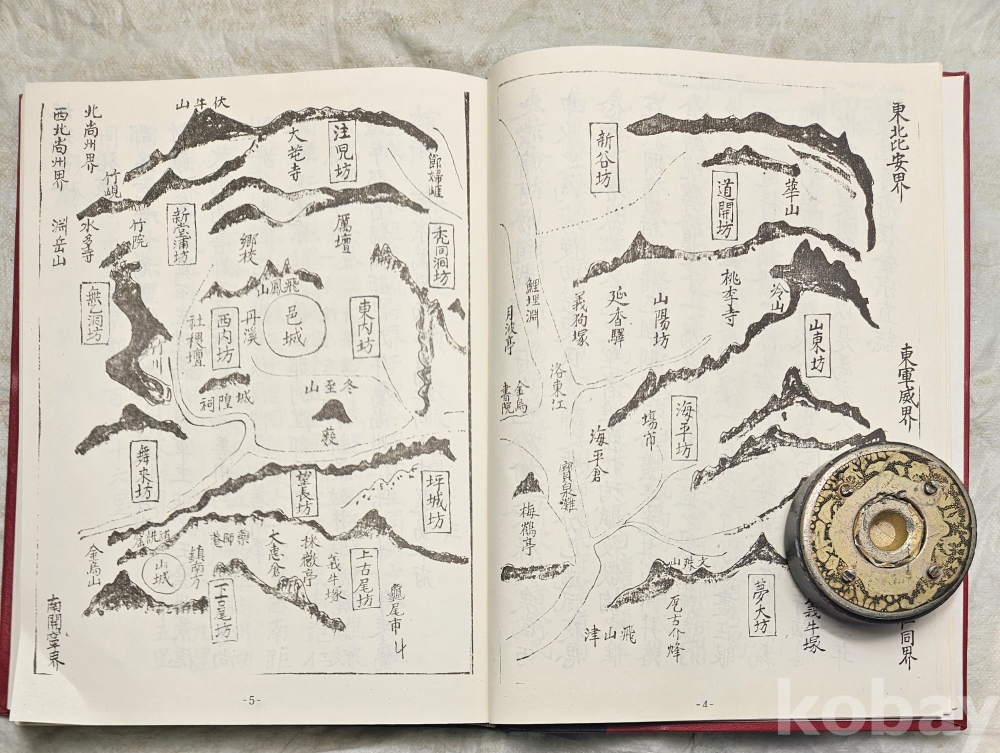 東北比安界
東軍威界
仁同界
華山
道開坊
新谷坊
冷山
桃李寺
山陽坊
延香驛
義狗塚
山東坊
海平坊
場市
海平倉
洛東江
鯉埋淵
月波亭
金烏
書院
寶泉灘
梅鶴亭
文殊山
義牛塚
夢大坊
飛山津
-4-
節婦
注兒坊
大芚寺
伏牛山
北尚州界
西北尚州界
竹峴
禿同洞坊
厲壇
鄉校
新堂浦坊
竹院
水多寺
淵岳山
飛鳳山
邑城
東內坊
丹溪
西內坊
社稷壇
無乙洞坊
竹川
冬至山
城隍祠
舞來坊
坪城坊
望長坊
龜尾市
上古尾坊
義牛塚
採薇亭
大惠倉
藥師菴
鎮南方
下古尾坊
山城
金烏山
南開寧界
-5-
kobay